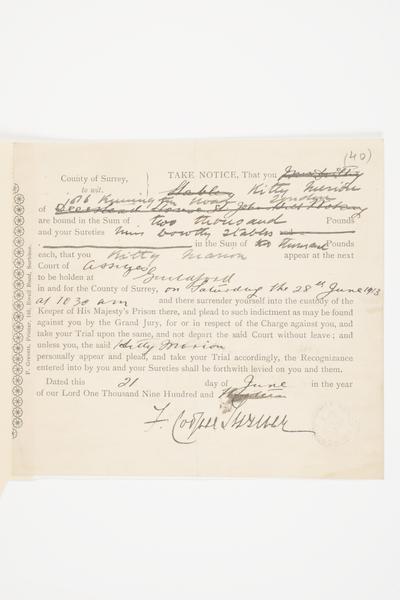 (40)
County of Surrey, TAKE NOTICE, That you
to wit. Stables Kitty Marion
of Kennington Road London
are bound in the Sum of two thousand Pounds
and your Sureties Miss Dorothy Stables
in the Sum of thousand Pounds
each, that you Kitty Marion appear at the next
Court of Assizes
to be holden at Guildford
in and for the County of Surrey, on Saturday the 28th June 1913
at 10 30 am and there surrender yourself into the custody of the
Keeper of His Majesty's Prison there, and plead to such indictment as may be found
against you by the Grand Jury, for or in respect of the Charge against you, and
take your Trial upon the same, and not depart the said Court without leave; and
unless you, the said Kitty Marion
personally appear and plead, and take your Trial accordingly, the Recognizance
entered into by you and your Sureties shall be forthwith levied on you and them.
Dated this 21 day of June in the year
of our Lord One Thousand Nine Hundred and
F. Cooper
Printer, Surbiton.